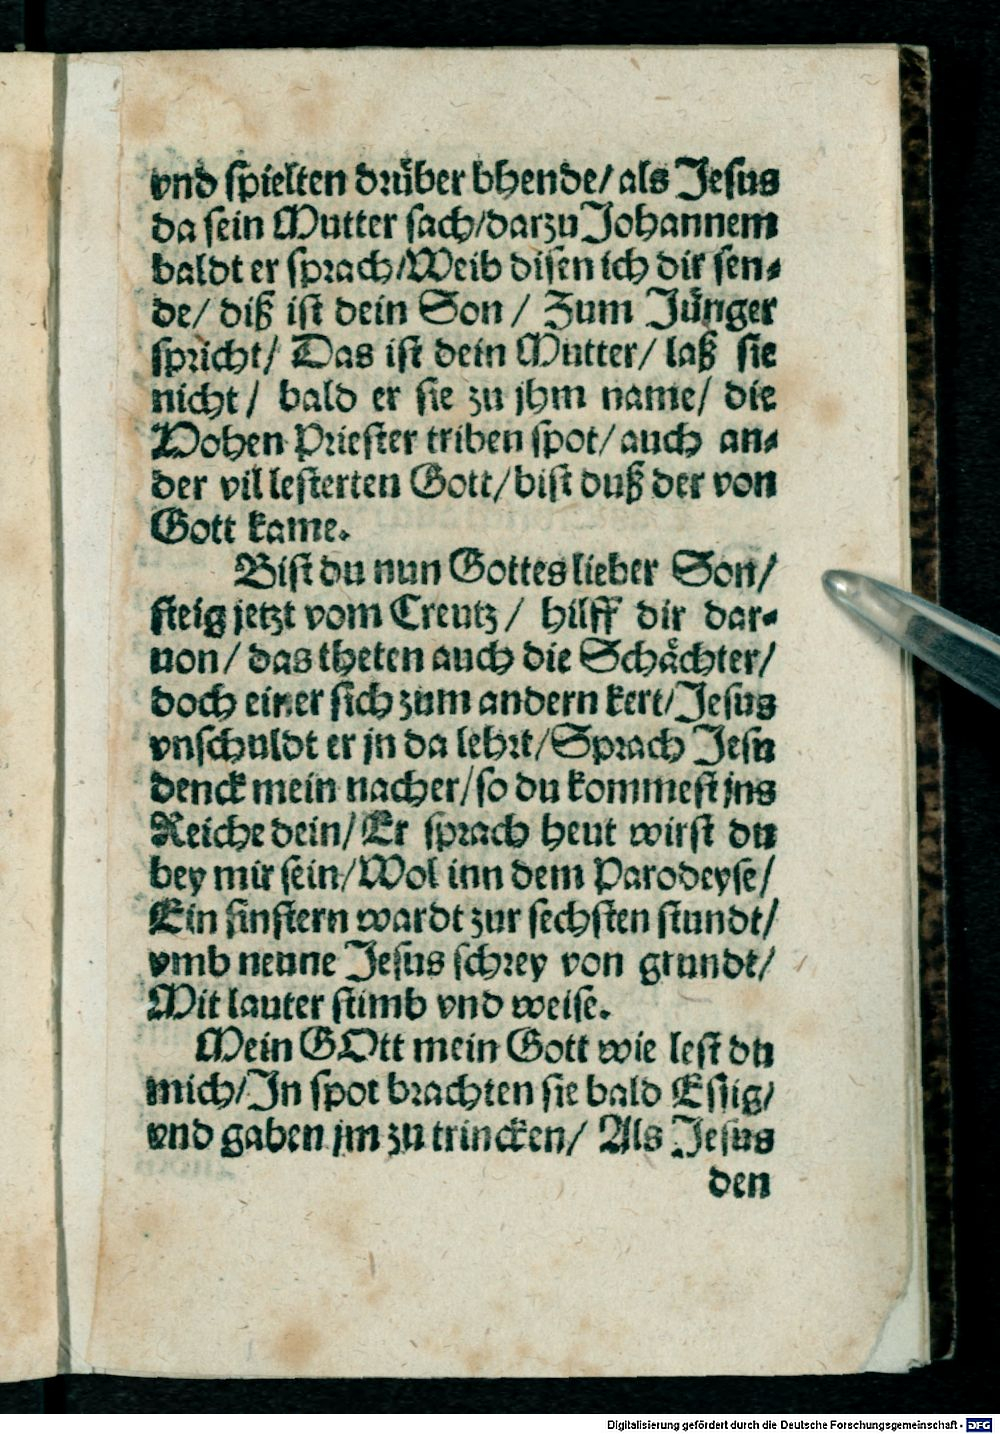 vnd spielten drüber bhende/ als Jesus
da sein Mutter sach/darzu Johannem
baldt er sprach/Weib disen ich dir sen⸗
de/ diß ist dein Son / Zum Jünger
spricht/ Das ist dein Mutter/ laß sie
nicht/ bald er sie zu jhm name/ die
Hohen Priester triben spot/ auch an⸗
der vil lesterten Gott/bist duß der von
Gott kame.
Bist du nun Gottes lieber Son/
steig jetzt vom Creutz / hilff dir dar⸗
uon/ das theten auch die Schächter/
doch einer sich zum andern kert/Jesus
vnschuldt er jn da lehrt/Sprach Jesu
denck mein nacher/so du kommest jns
Reiche dein/ Er sprach heut wirst du
bey mir sein/Wol inn dem Parodeyse/
Ein finstern wardt zur sechsten stundt/
vmb neune Jesus schrey von grundt/
Mit lauter stimb vnd weise.
Mein GOtt mein Gott wie lest du
mich/In spot brachten sie bald Essig/
vnd gaben jm zu trincken/ Als Jesus
den
Digitalisierung gefördert durch die Deutsche Forschungsgemeinschaft - DFG